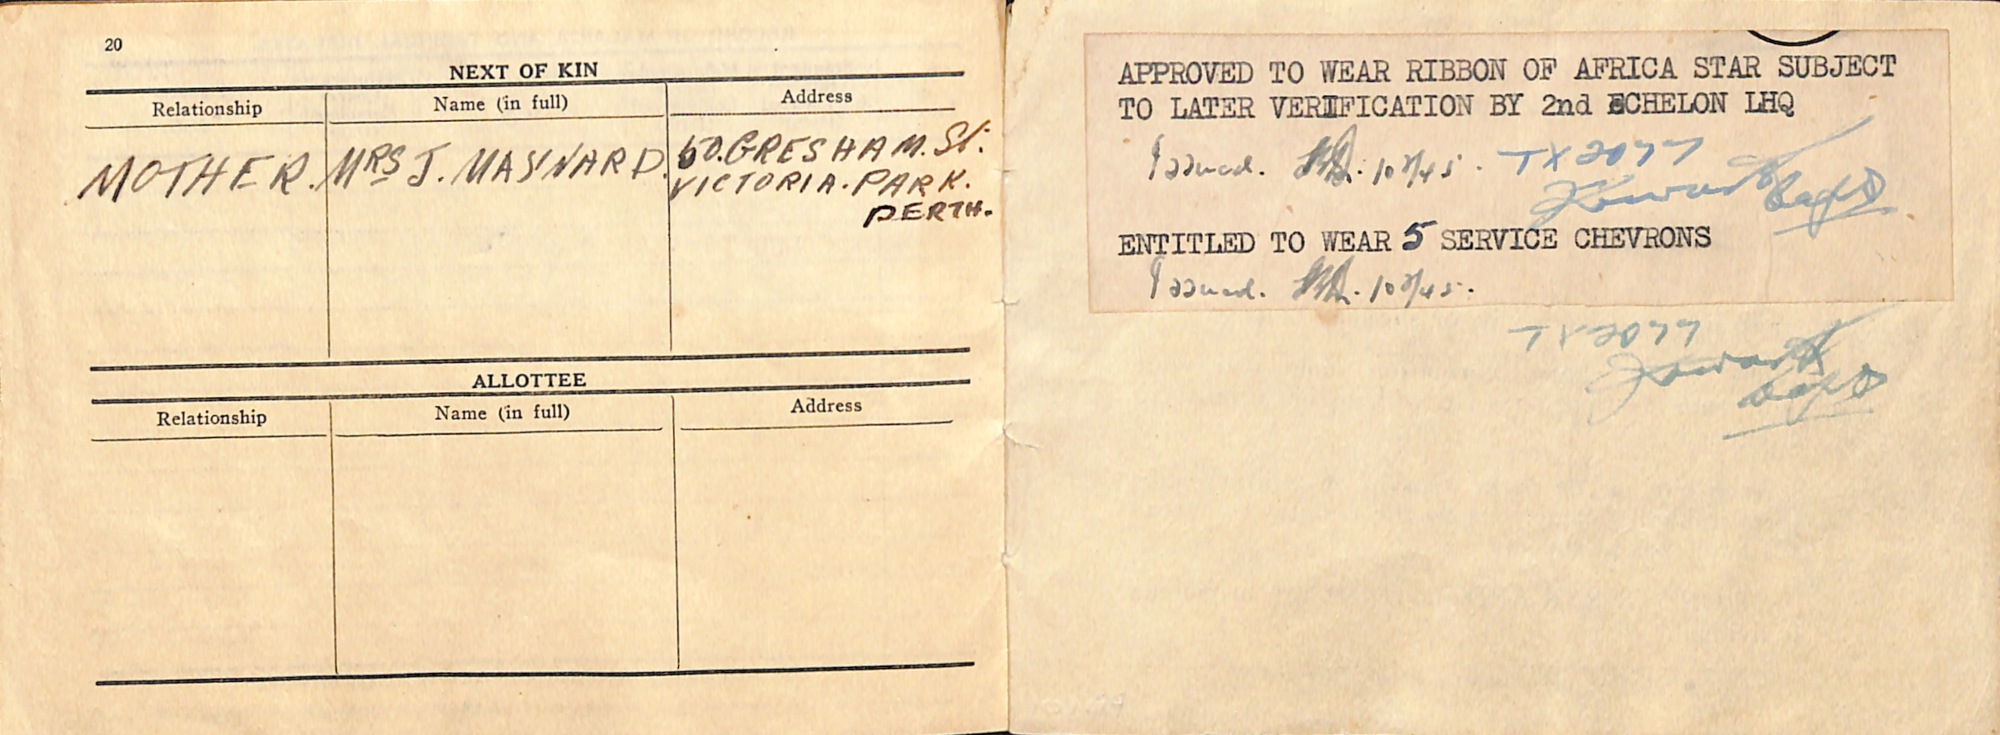 20
NEXT OF KIN
Relationship Name (in full) Address
MOTHER. MRS J. MAYNARD. 60. GRESHAM. St.
VICTORIA. PARK.
PERTH.
ALLOTTEE
Relationship Name (in full) Address
APPROVED TO WEAR RIBBON OF AFRICA STAR SUBJECT
TO LATER VERIFICATION BY 2nd ECHELON LHQ
Issued. TX2077
Capt
ENTITLED TO WEAR 5 SERVICE CHEVRONS
Issued.
TX2077
Capt